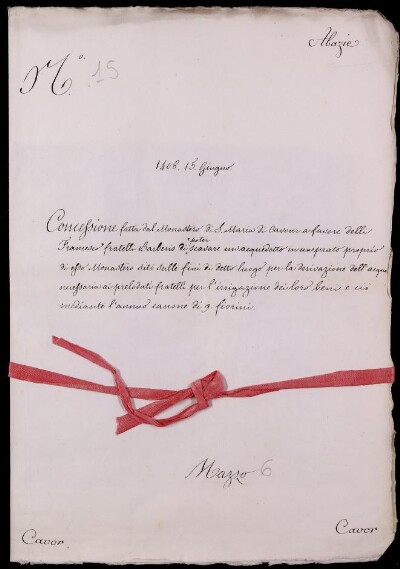 Abazie
N.º 15
1406. 15. Giugno
Concessione fatta dal Monastero di S. Maria di Cavour a favore delli
Francesco fratelli Barberis di poter scavare un acquedotto in un prato proprio
di esso Monastero sito sulle fini di detto luogo per la derivazione dell'acqua
necessaria ai prelodati fratelli per l'irrigazione dei loro beni e ciò
mediante l'annuo canone di 9 fiorini.
Mazzo 6
Cavor
Cavor